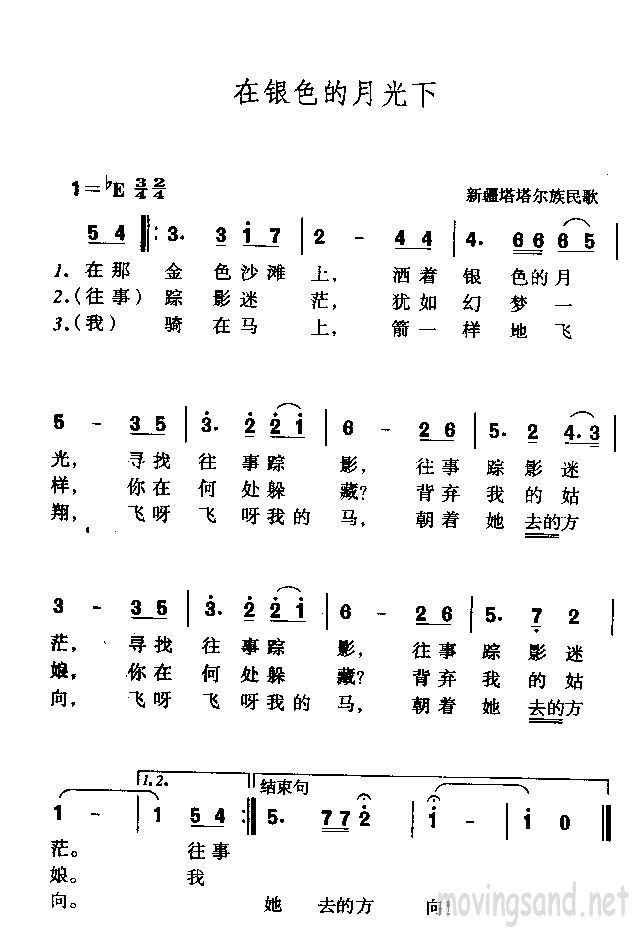 在银色的月光下
1=♭E 3/4 2/4
新疆塔塔尔族民歌
5 4 ‖: 3. 3 1 7 | 2 - 4 4 | 4. 6 6 6 5 |
1. 在那 金 色沙滩 上， 洒着 银 色的月
2.（往事）踪 影迷 茫， 犹如 幻 梦一
3.（我） 骑 在马 上， 箭一 样 地飞
5 - 3 5 | 3. 2 2 1 | 6 - 2 6 | 5. 2 4. 3 |
光， 寻找 往 事踪 影， 往事 踪 影迷
样， 你在 何 处躲 藏？ 背弃 我 的姑
翔， 飞呀 飞 呀我的 马， 朝着 她 去的方
3 - 3 5 | 3. 2 2 1 | 6 - 2 6 | 5. 7 2 |
茫， 寻找 往 事踪 影， 往事 踪 影迷
娘， 你在 何 处躲 藏？ 背弃 我 的姑
向， 飞呀 飞 呀我的 马， 朝着 她 去的方
1. 2. 结束句
1 - | 1 5 4 :‖ 5. 7 7 2 | 1 - | 1 0 ‖
茫。 往事
娘。 我
向。 她 去的方 向！
movingsand.net